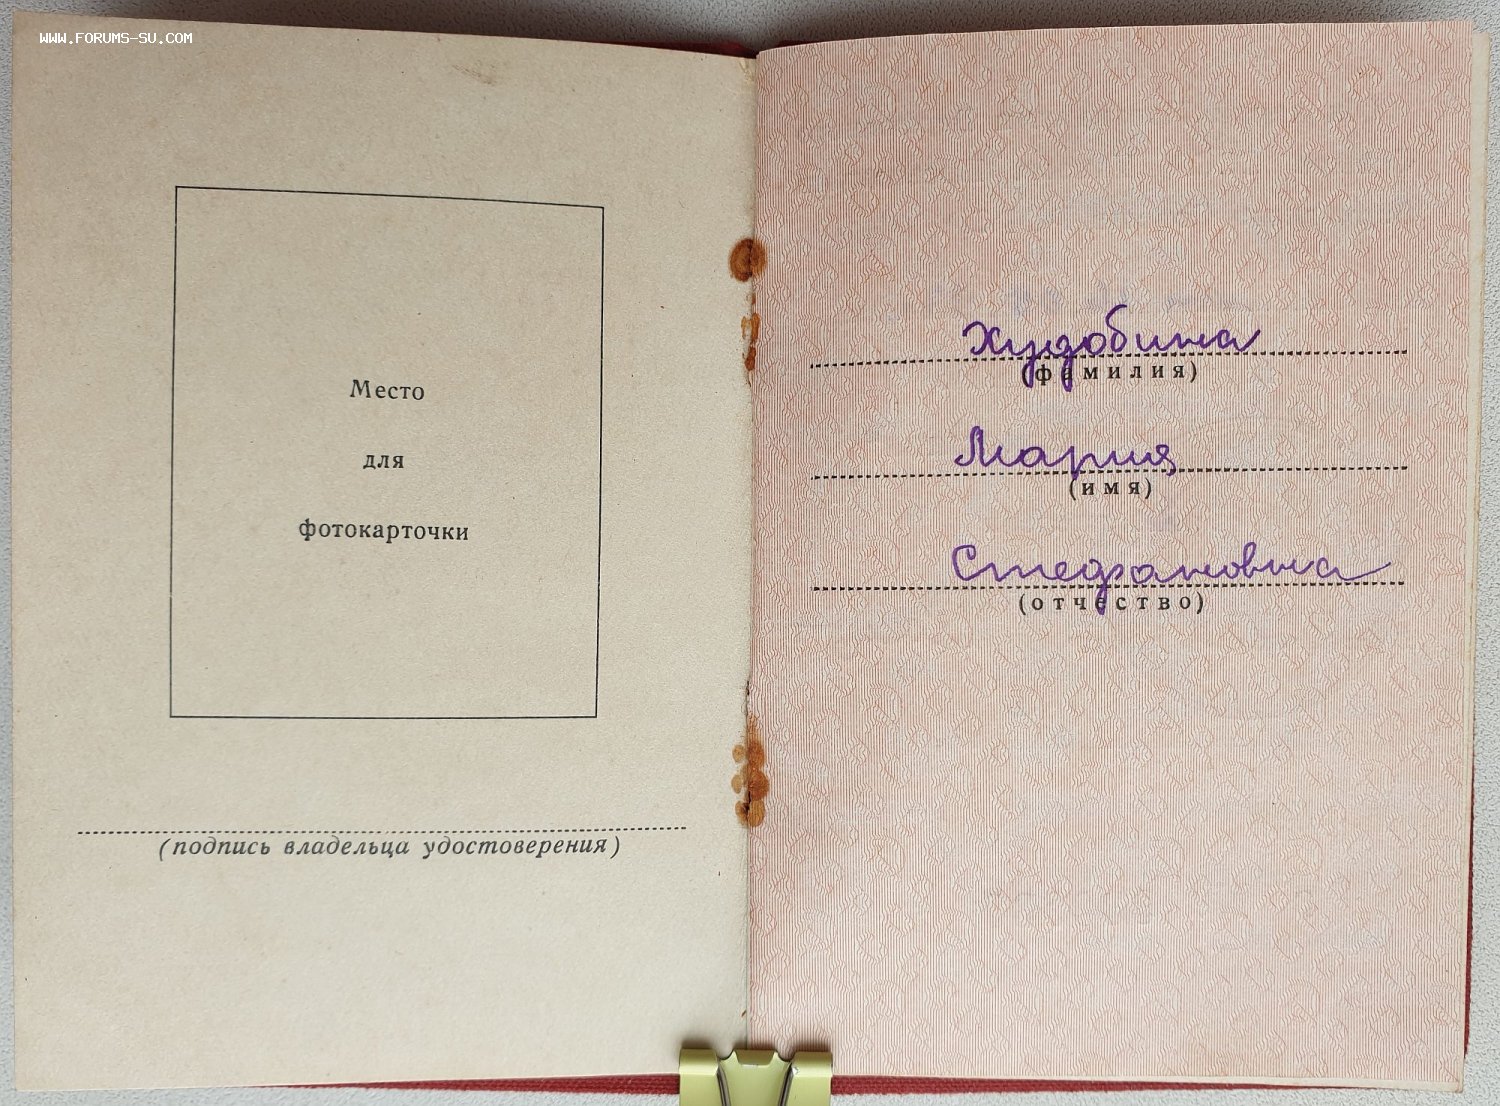 WWW.FORUMS-SU.COM
Место
для
фотокарточки
(подпись владельца удостоверения)
Худобина
(фамилия)
Мария
(имя)
Стефановна
(отчество)